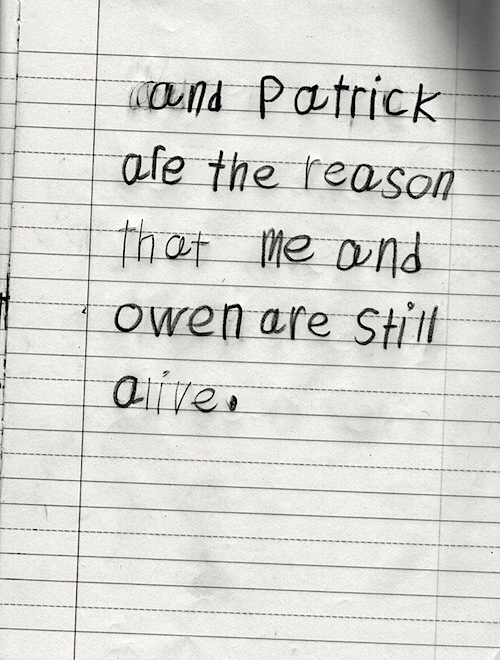 and Patrick
are the reason
that me and
owen are still
alive.